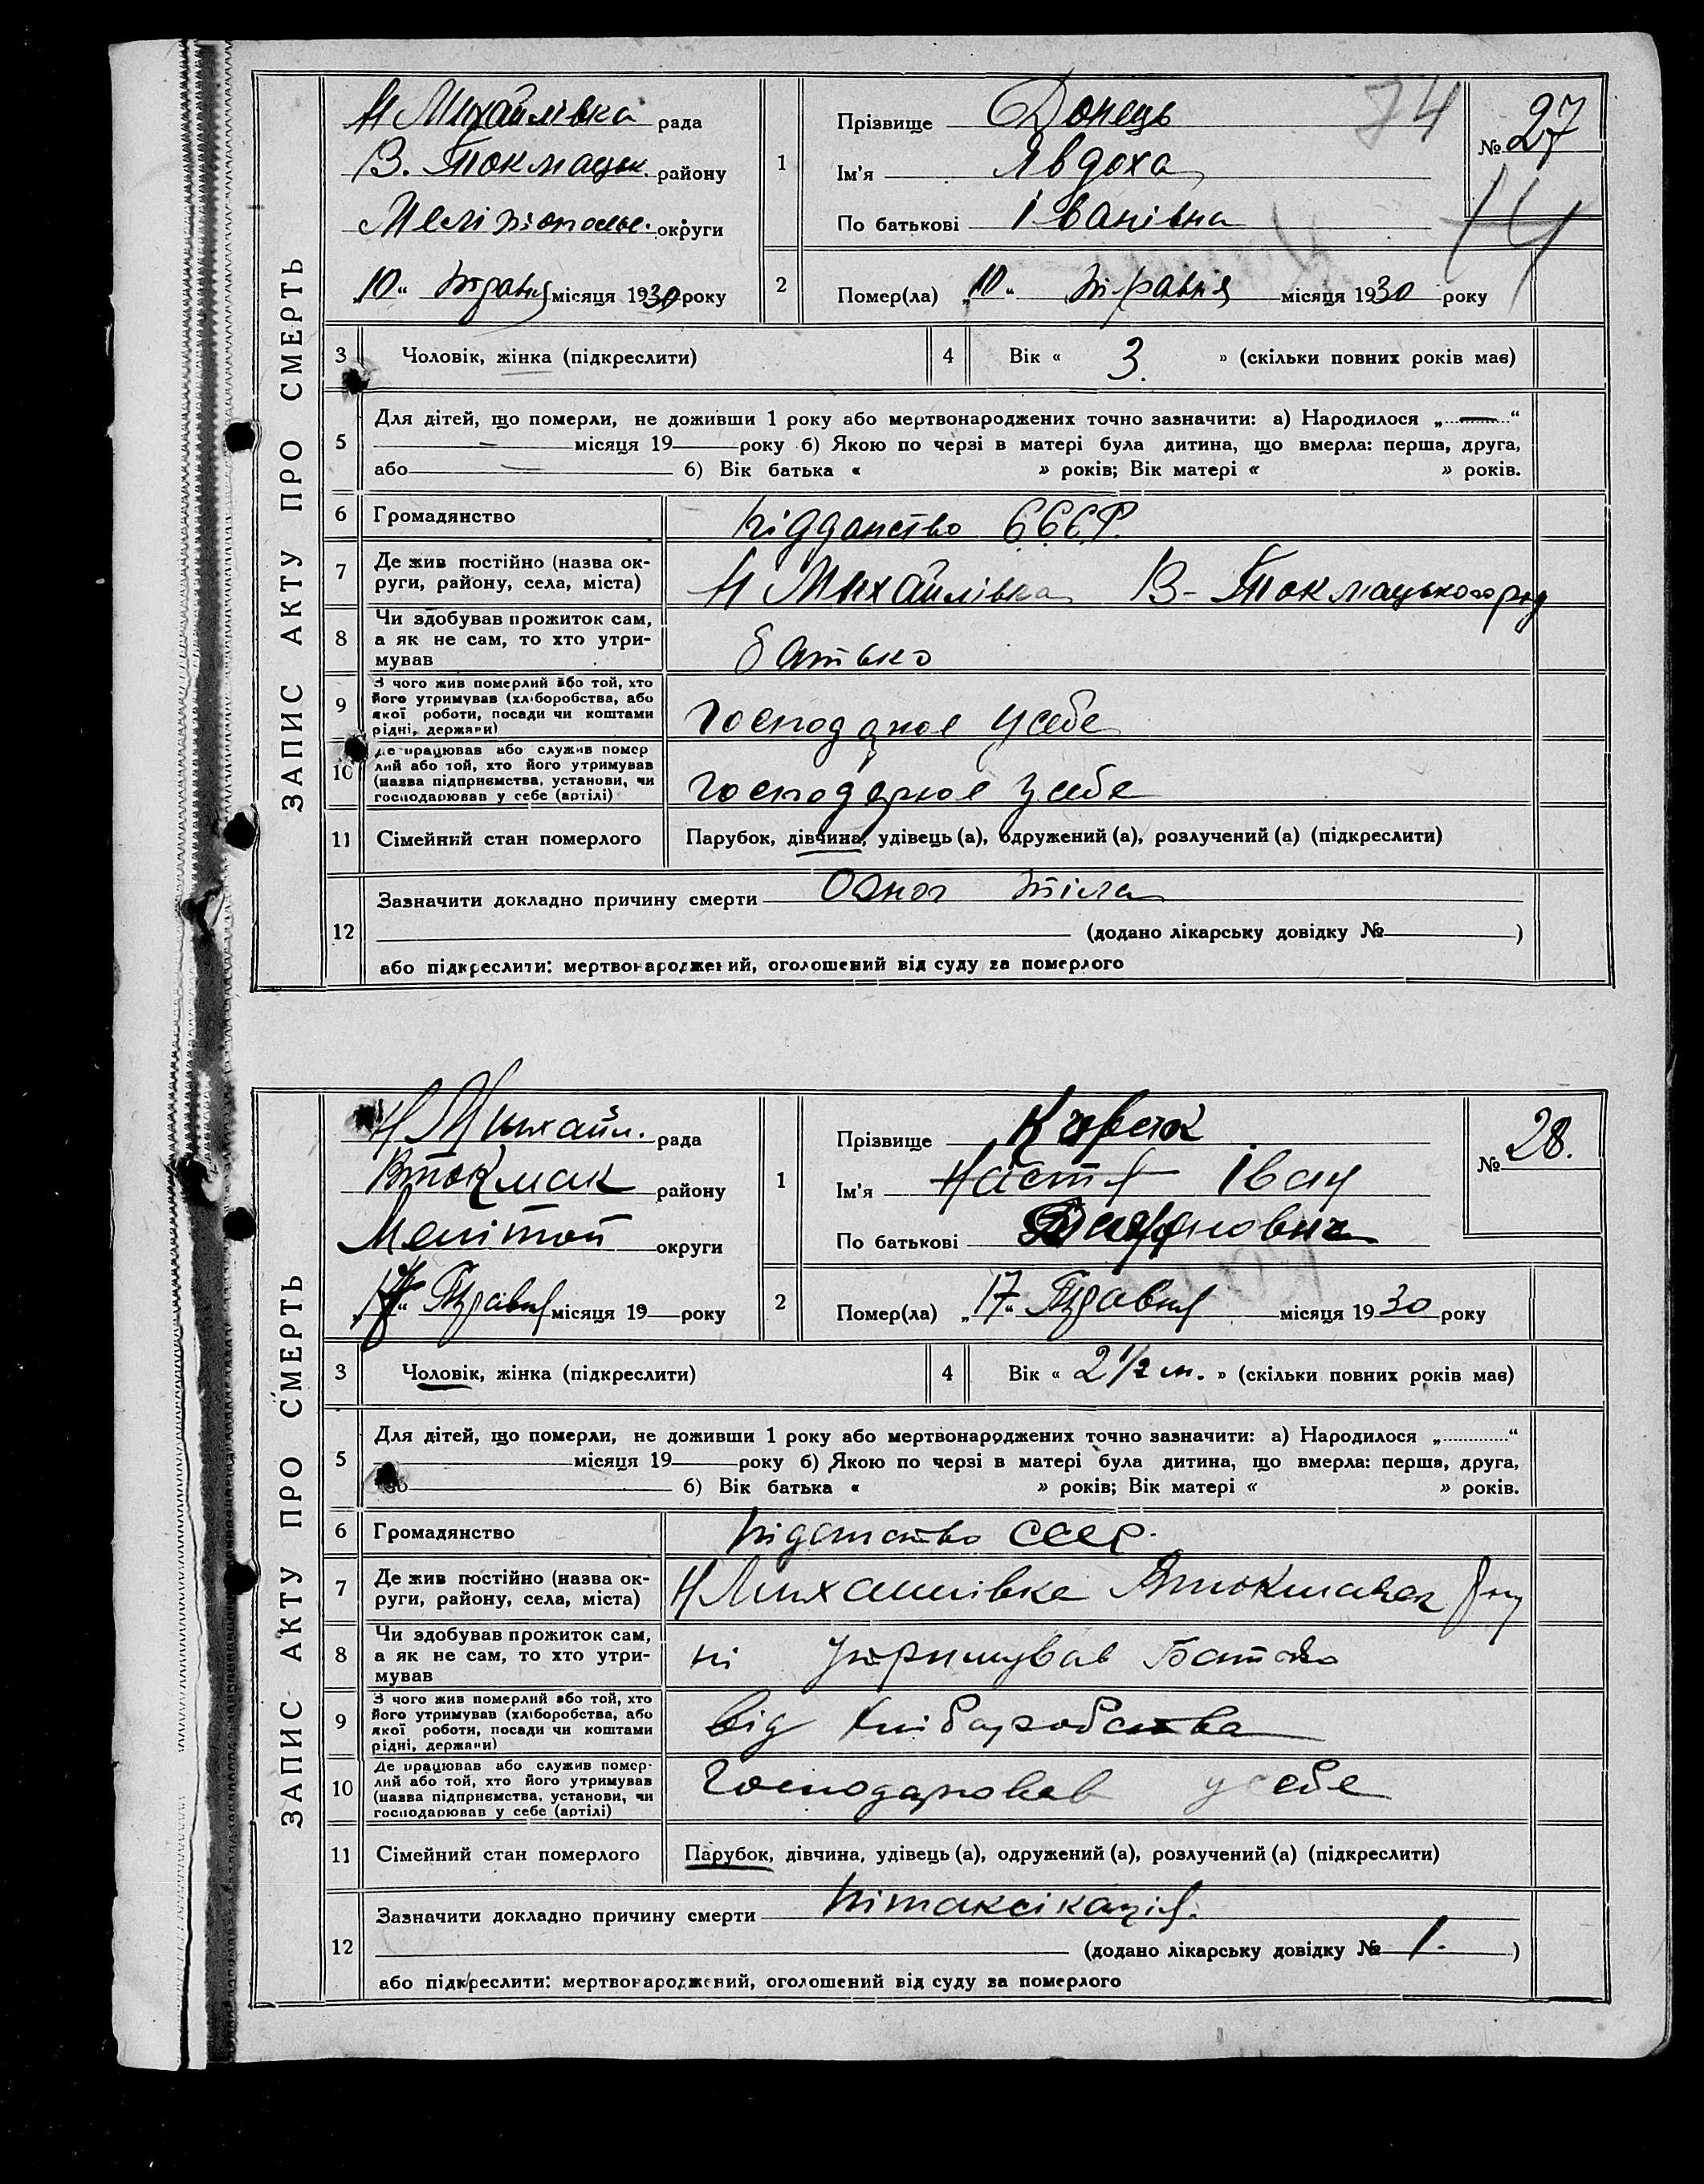 ЗАПИС АКТУ ПРО СМЕРТЬ
Н Михайлівка рада
В. Токмацьк. району
Мелітопольс. округи
„10“ травня місяця 1930 року
1
Прізвище Донець
Ім'я Явдоха
По батькові Іванівна
74
№ 27
14
2
Помер(ла) „10“ травня місяця 1930 року
3 Чоловік, жінка (підкреслити)
4 Вік « 3. » (скільки повних років має)
5
Для дітей, що померли, не доживши 1 року або мертвонароджених точно зазначити: а) Народилося „—“
— місяця 19 року б) Якою по черзі в матері була дитина, що вмерла: перша, друга,
або — б) Вік батька « » років; Вік матері « » років.
6 Громадянство підданство СССР.
7 Де жив постійно (назва ок-
руги, району, села, міста) Н Михайлівка В-Токмацького рну
8 Чи здобував прожиток сам,
а як не сам, то хто утри-
мував батько
9 З чого жив померлий або той, хто
його утримував (хліборобства, або
якої роботи, посади чи коштами
рідні, держави) господарює у себе
10 Де працював або служив помер
лий або той, хто його утримував
(назва підприємства, установи, чи
господарював у себе (артілі) господарює у себе
11 Сімейний стан померлого Парубок, дівчина, удівець (а), одружений (а), розлучений (а) (підкреслити)
12
Зазначити докладно причину смерти тіла
(додано лікарську довідку № )
або підкреслити: мертвонароджений, оголошений від суду за померлого
ЗАПИС АКТУ ПРО СМЕРТЬ
Н Михайл. рада
Втокмак району
Мелітоп округи
„17“ Травня місяця 19 року
1
Прізвище
Ім'я Настя Іван
По батькові
№ 28.
2
Помер(ла) „17“ Травня місяця 1930 року
3 Чоловік, жінка (підкреслити)
4 Вік « 2 1/2 м. » (скільки повних років має)
5
Для дітей, що померли, не доживши 1 року або мертвонароджених точно зазначити: а) Народилося „ “
місяця 19 року б) Якою по черзі в матері була дитина, що вмерла: перша, друга,
або б) Вік батька « » років; Вік матері « » років.
6 Громадянство піданство СССР.
7 Де жив постійно (назва ок-
руги, району, села, міста) Н Михайлівка Втокмацьк рну
8 Чи здобував прожиток сам,
а як не сам, то хто утри-
мував ні утримував Батько
9 З чого жив померлий або той, хто
його утримував (хліборобства, або
якої роботи, посади чи коштами
рідні, держави) від хліборобства
10 Де працював або служив помер-
лий або той, хто його утримував
(назва підприємства, установи, чи
господарював у себе (артілі) господарював у себе
11 Сімейний стан померлого Парубок, дівчина, удівець (а), одружений (а), розлучений (а) (підкреслити)
12
Зазначити докладно причину смерти інтаксікація.
(додано лікарську довідку № 1. )
або підкреслити: мертвонароджений, оголошений від суду за померлого